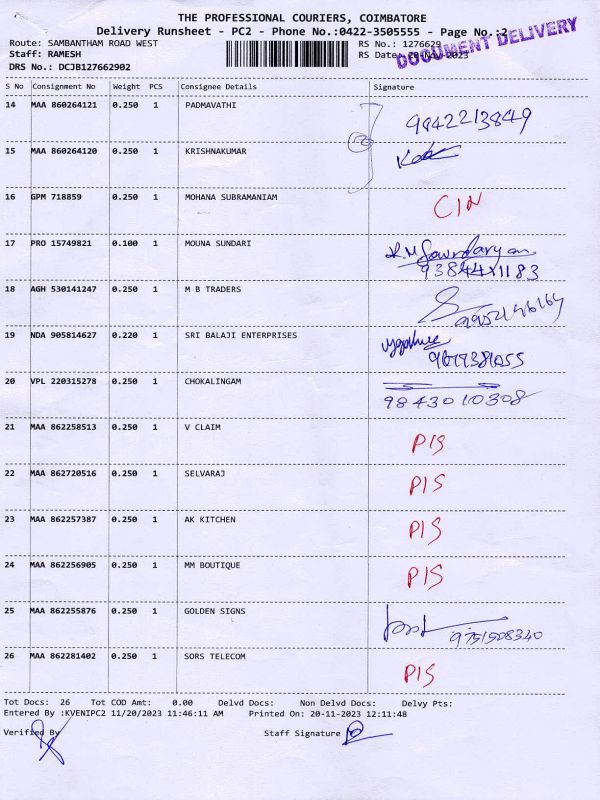 THE PROFESSIONAL COURIERS, COIMBATORE
Delivery Runsheet - PC2 - Phone No.:0422-3505555 - Page No.:2
Route: SAMBANTHAM ROAD WEST RS No.: 1276629
Staff: RAMESH RS Date: 20-Nov-2023
DOCUMENT DELIVERY
DRS No.: DCJB127662902
S No Consignment No Weight PCS Consignee Details Signature
14 MAA 860264121 0.250 1 PADMAVATHI 9442213849
15 MAA 860264120 0.250 1 KRISHNAKUMAR
16 GPM 718859 0.250 1 MOHANA SUBRAMANIAM CIN
17 PRO 15749821 0.100 1 MOUNA SUNDARI
18 AGH 530141247 0.250 1 M B TRADERS
19 NDA 905814627 0.220 1 SRI BALAJI ENTERPRISES
20 VPL 220315278 0.250 1 CHOKALINGAM 9843010308
21 MAA 862258513 0.250 1 V CLAIM PIS
22 MAA 862720516 0.250 1 SELVARAJ PIS
23 MAA 862257387 0.250 1 AK KITCHEN PIS
24 MAA 862256905 0.250 1 MM BOUTIQUE PIS
25 MAA 862255876 0.250 1 GOLDEN SIGNS 9751508340
26 MAA 862281402 0.250 1 SORS TELECOM PIS
Tot Docs: 26 Tot COD Amt: 0.00 Delvd Docs: Non Delvd Docs: Delvy Pts:
Entered By :KVENIPC2 11/20/2023 11:46:11 AM Printed On: 20-11-2023 12:11:48
Verified By Staff Signature